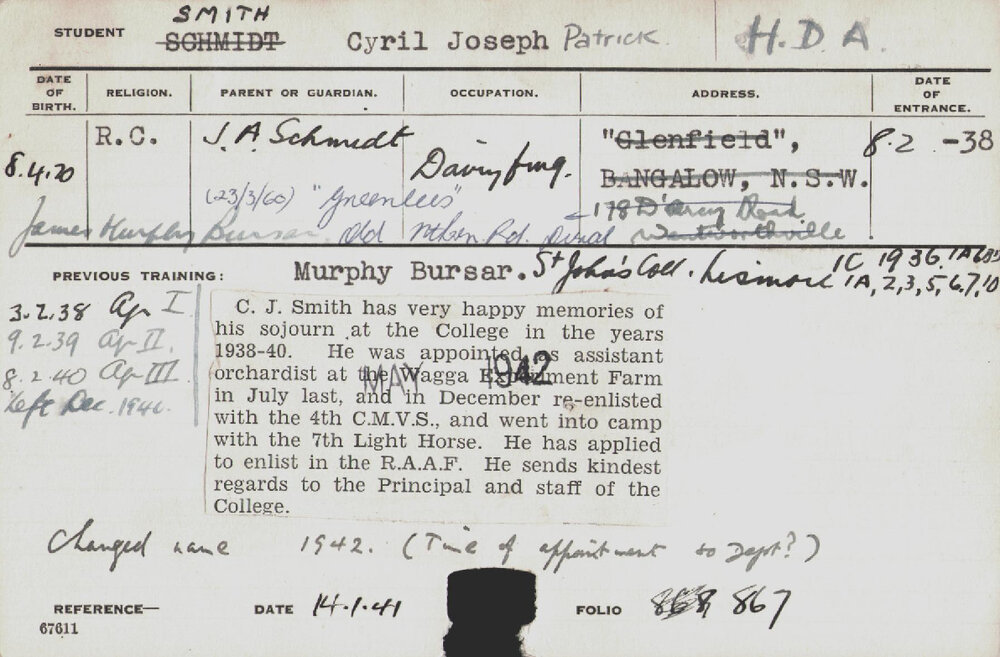 SMITH
STUDENT SCHMIDT Cyril Joseph Patrick H.D.A.
DATE OF BIRTH. RELIGION. PARENT OR GUARDIAN. OCCUPATION. ADDRESS. DATE OF ENTRANCE.
8.4.20 R.C. J. A. Schmidt Dairyfmg. "Glenfield", 8.2-38
BANGALOW, N.S.W.
(23/3/60) "Greenlees" 178 D'Arcy Road
James Murphy Bursar Old Nthen Rd. Dural Wentworthville
PREVIOUS TRAINING: Murphy Bursar. St John's Coll. Lismore 1C 1936.
1A, 2, 3, 5, 6, 7, 10
3.2.38 Ag I
9.2.39 Ag II.
8.2.40 Ag III
Left Dec. 1940.
C. J. Smith has very happy memories of
his sojourn at the College in the years
1938-40. He was appointed as assistant
orchardist at the Wagga Experiment Farm
MAY 1942
in July last, and in December re-enlisted
with the 4th C.M.V.S., and went into camp
with the 7th Light Horse. He has applied
to enlist in the R.A.A.F. He sends kindest
regards to the Principal and staff of the
College.
Changed name 1942. (Time of appointment to Dept?)
REFERENCE— DATE 14.1.41 FOLIO 867
67611